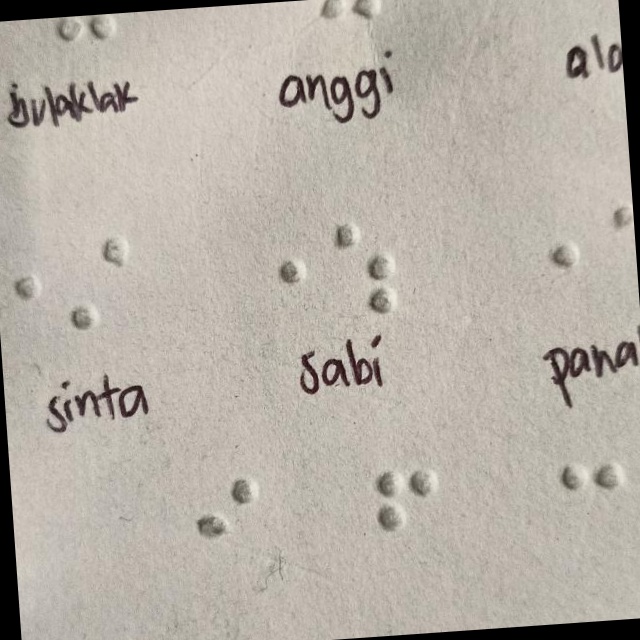 bulaklak anggi alo
sinta sabi pana